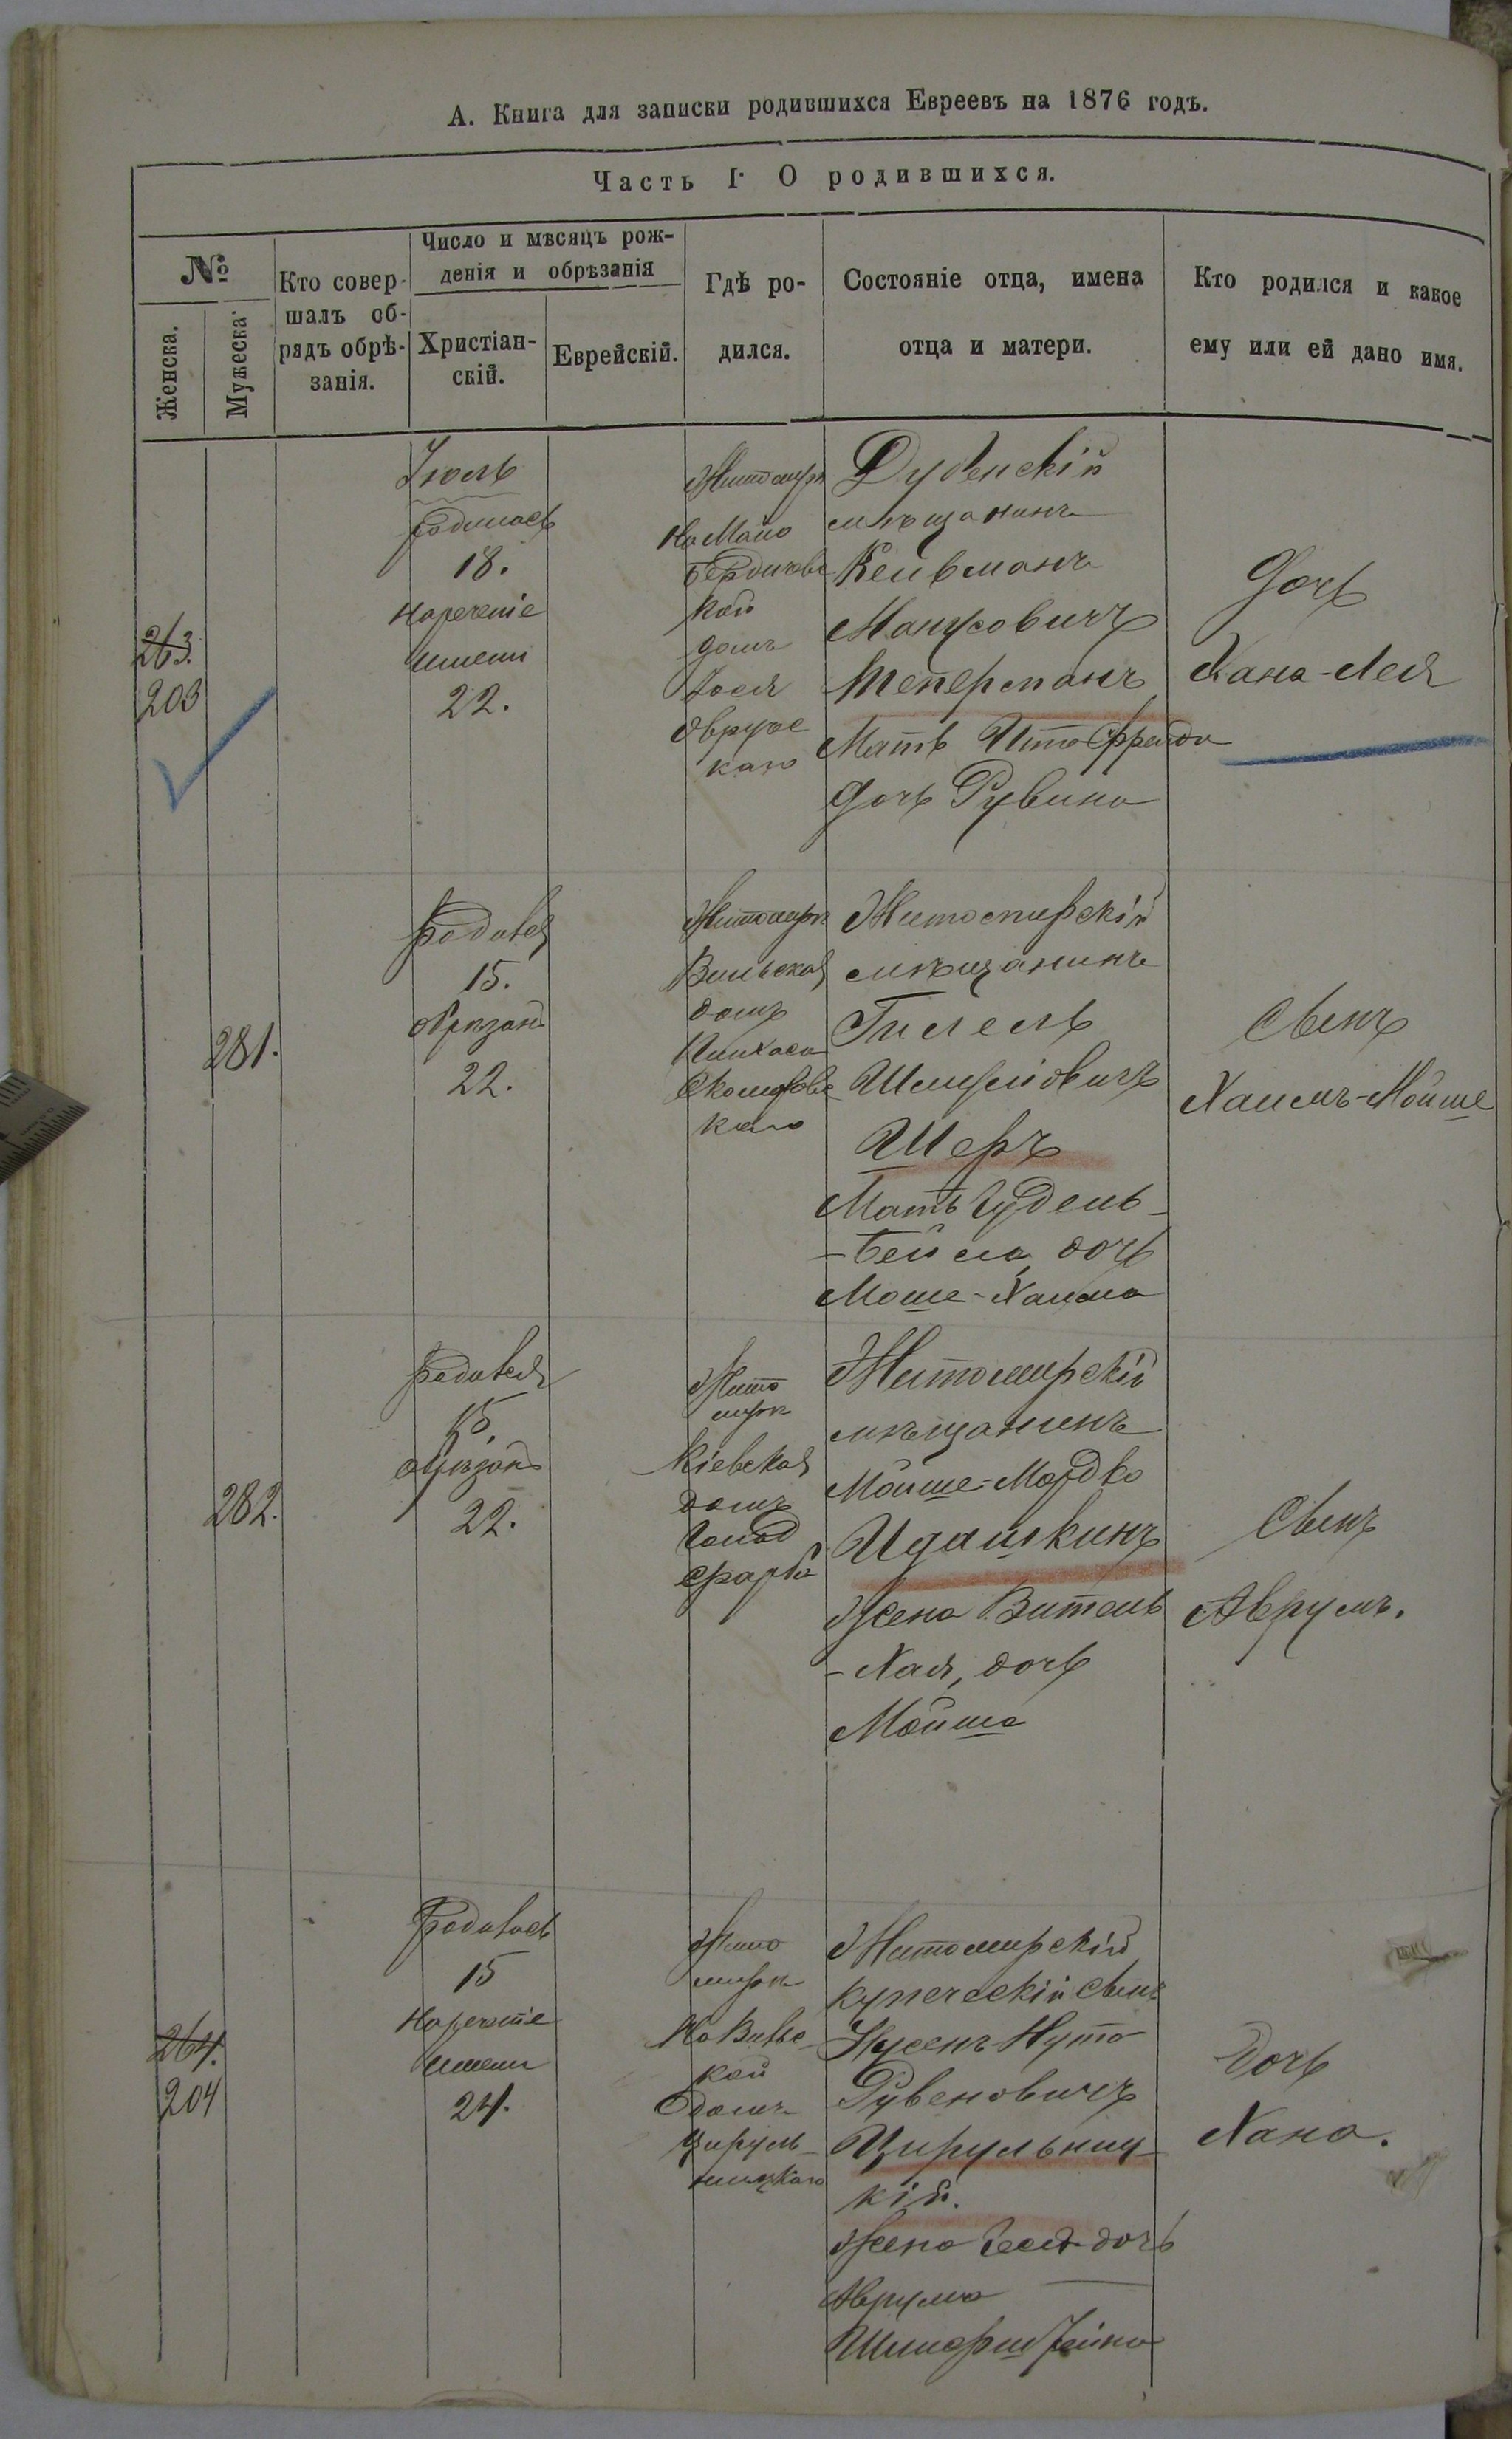 А. Книга для записки родившихся Евреевъ на 1876 годъ.
Часть I. О родившихся.
№
Женска.
Мужеска.
Кто совер-
шалъ об-
рядъ обрѣ-
занія.
Число и мѣсяцъ рож-
денія и обрѣзанія
Христіан-
скій.
Еврейскій.
Гдѣ ро-
дился.
Состояніе отца, имена
отца и матери.
Кто родился и какое
ему или ей дано имя.
263.
203
Іюль
родилась
18.
нареченіе
имени
22.
Житомиръ
На Мало
Бердичевс
кой
домъ
Іося
Овруч
каго
Дубенскій
мѣщанинъ
Кельманъ
Манусовичъ
Теперманъ
Мать Ита Фрейда
дочь Рувина
Дочь
Хана-Лея
281.
Родился
15.
обрѣзанъ
22.
Житомиръ
Вильская
домъ
Пинхаса
каго
Житомирскій
мѣщанинъ
Гилель
Шмулiовичъ
Шеръ
Мать Гудель-
-Бейла, дочь
Моше-Хаима
Сынъ
Хаимъ-Мойше
282.
Родился
15.
обрѣзанъ
22.
Жито
миръ
Кіевская
домъ
Житомирскій
мѣщанинъ
Мойше-Мордко
Идашкинъ
Жена Витель
-Хая, дочь
Мойша
Сынъ
Аврумъ.
264.
204
Родилась
15
Нареченіе
имени
24.
Жито
миръ
На Вильс
кой
домъ
Цируль-
ницкаго
Житомирскій
купеческій сынъ
Нусенъ-Нута
Рувеновичъ
Цирульниц-
кій.
Жена дочь
Аврума
Дочь
Хана.